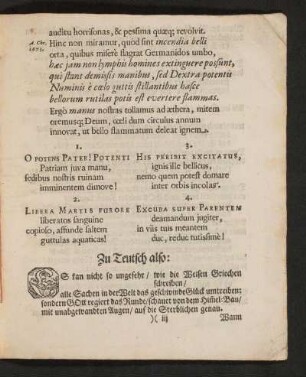 auditu horrisonas, & pessima quæq; revolvit.
Hinc non miramur, quod sint incendia belli
orta, quibus miserè flagrat Germanidos umbo,
hæc jam non lymphis homines extinguere possunt,
qui stant demissis manibus, sed Dextra potentis
Numinis è cœlo guttis stillantibus hasce
bellorum rutilas potis est evertere flammas.
Ergò manus nostras tollamus ad æthera, mitem
oremusq; Deum, cœli dum circulus annum
innovat, ut bello flammatum deleat ignem.
1.
O POTENS PATER! POTENTI
Patriam juva manu,
sedibus nostris ruinam
imminentem dimove!
2.
LIBERA MARTIS FURORE
liberatos sanguine
copioso, affunde saltem
guttulas aquaticas!
3.
HIS PERIBIT EXCITATUS,
ignis ille bellicus,
nemo quem potest domare
inter orbis incolas.
4.
EXCUDA SUPER PARENTEM
deamandum jugiter,
in viis tuis meantem
duc, reduc tutissimè!
Zu Teutsch also:
ES kan nicht so ungefehr / wie die Weisen Griechen
schreiben /
alle Sachen in der Welt das geschwinde Glück umtreiben:
sondern GOtt regiert das Runde / schauet von dem Him̃el-Bau /
mit unabgewandten Augen / auf die Sterblichen genau.
)( iij
Wann